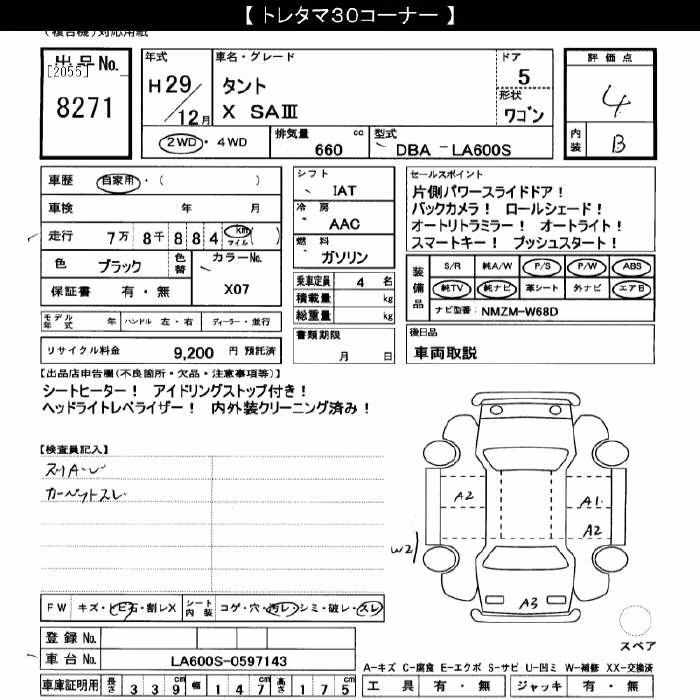 【 トレタマ30コーナー 】
(複合機)対応用紙
出品No.
[2055]
8271
年式
H 29/12月
車名・グレード
タント
X SAⅢ
ドア
5
形状
ワゴン
評価点
4
内装
B
2WD・4WD
排気量
660 cc
型式
DBA －LA600S
車歴 自家用・( )
車検 年 月
走行 7万 8千 8 8 4 km マイル ( )
色 ブラック 色替
カラーNo.
X07
保証書 有・無
シフト
IAT
冷房
AAC
燃料
ガソリン
乗車定員 4 名
積載量 kg
総重量 kg
セールスポイント
片側パワースライドドア！
バックカメラ！ ロールシェード！
オートリトラミラー！ オートライト！
スマートキー！ プッシュスタート！
装備品
S/R 純A/W P/S P/W ABS
純TV 純ナビ 革シート 外ナビ エアB
ナビ型番： NMZM-W68D
モデル年式 年 ハンドル 左・右 ディーラー・並行
リサイクル料金 9,200 円 預託済
書類期限
月 日
後日品
車両取説
【出品店申告欄(不良箇所・欠品・注意事項等)】
シートヒーター！ アイドリングストップ付き！
ヘッドライトレベライザー！ 内外装クリーニング済み！
【検査員記入】
スリAルW
カーペットスレ
A2
A1
A2
W2
A3
スペア
FW キズ・トビ石・割レX シート内装 コゲ・穴・汚レ・シミ・破レ・スレ
登録No.
車台No. LA600S-0597143
車庫証明用 長さ 3 3 9 cm 幅 1 4 7 cm 高さ 1 7 5 cm
A-キズ C-腐食 E-エクボ S-サビ U-凹ミ W-補修 XX-交換済
工具 有・無 ジャッキ 有・無